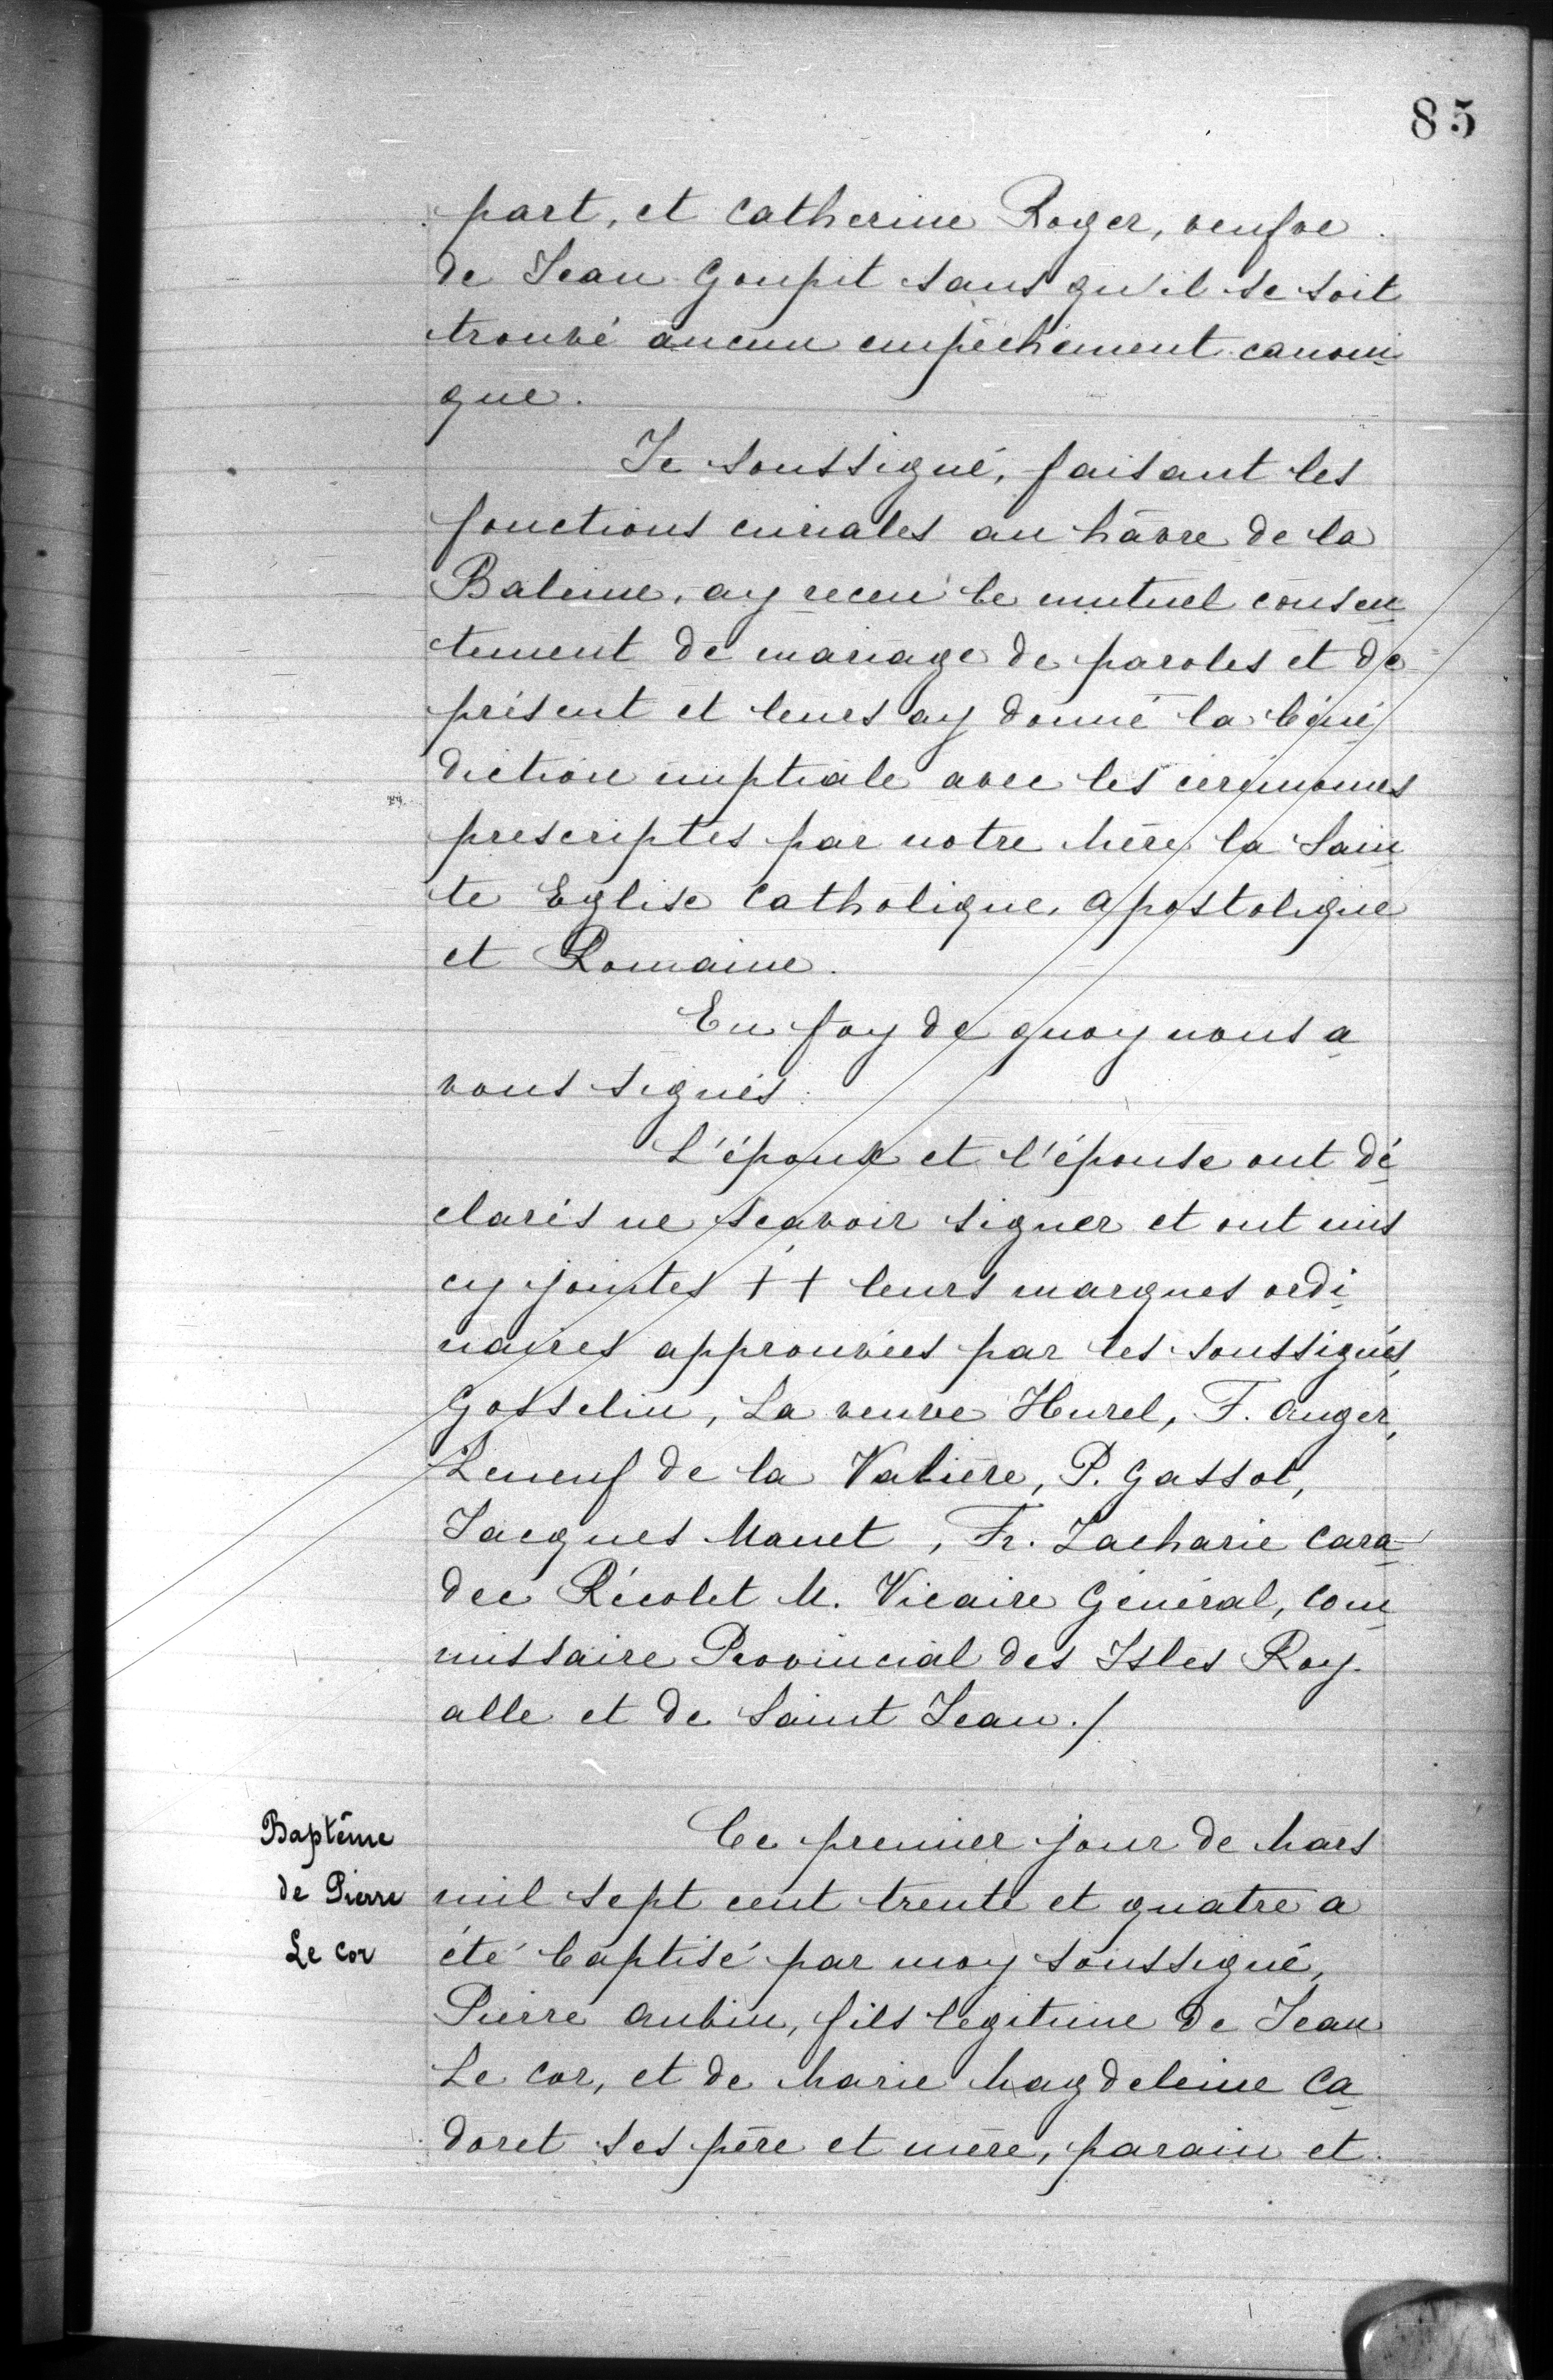 85
part, et Catherine Roger, veufve
de Jean Goupit sans qu'il se soit
trouvé aucun empêchement canoni
que.
Je soussigné, faisant les
fonctions curiales au hâvre de la
Baleine, ay receu le mutuel consen
tement de mariage de paroles et de
présent et leurs ay donné la béné
diction nuptiale avec les cérémonies
prescriptes par notre Mère la Sain
te Eglise Catholique, Apostolique
et Romaine.
En foy de quoy nous a
vons signés.
L'époux et l'épouse ont dé
clarés ne sçavoir signer et ont mis
cy jointes + + leurs marques ordi
naires approuvées par les soussignés,
Gosselin, La veuve Hurel, F. Auger,
Leneuf de la Valière, P. Gassot,
Jacques Manet, Fr. Zacharie Cara
dec Récolet M. Vicaire Général, Com
missaire Provincial des Isles Roy
alle et de Saint Jean./
Baptême
de Pierre
Le Cor
Ce premier jour de Mars
mil sept cent trente et quatre a
été baptisé par moy soussigné,
Pierre Aubin, fils legitime de Jean
Le Cor, et de Marie Magdeleine Ca
doret ses père et mère, parain et